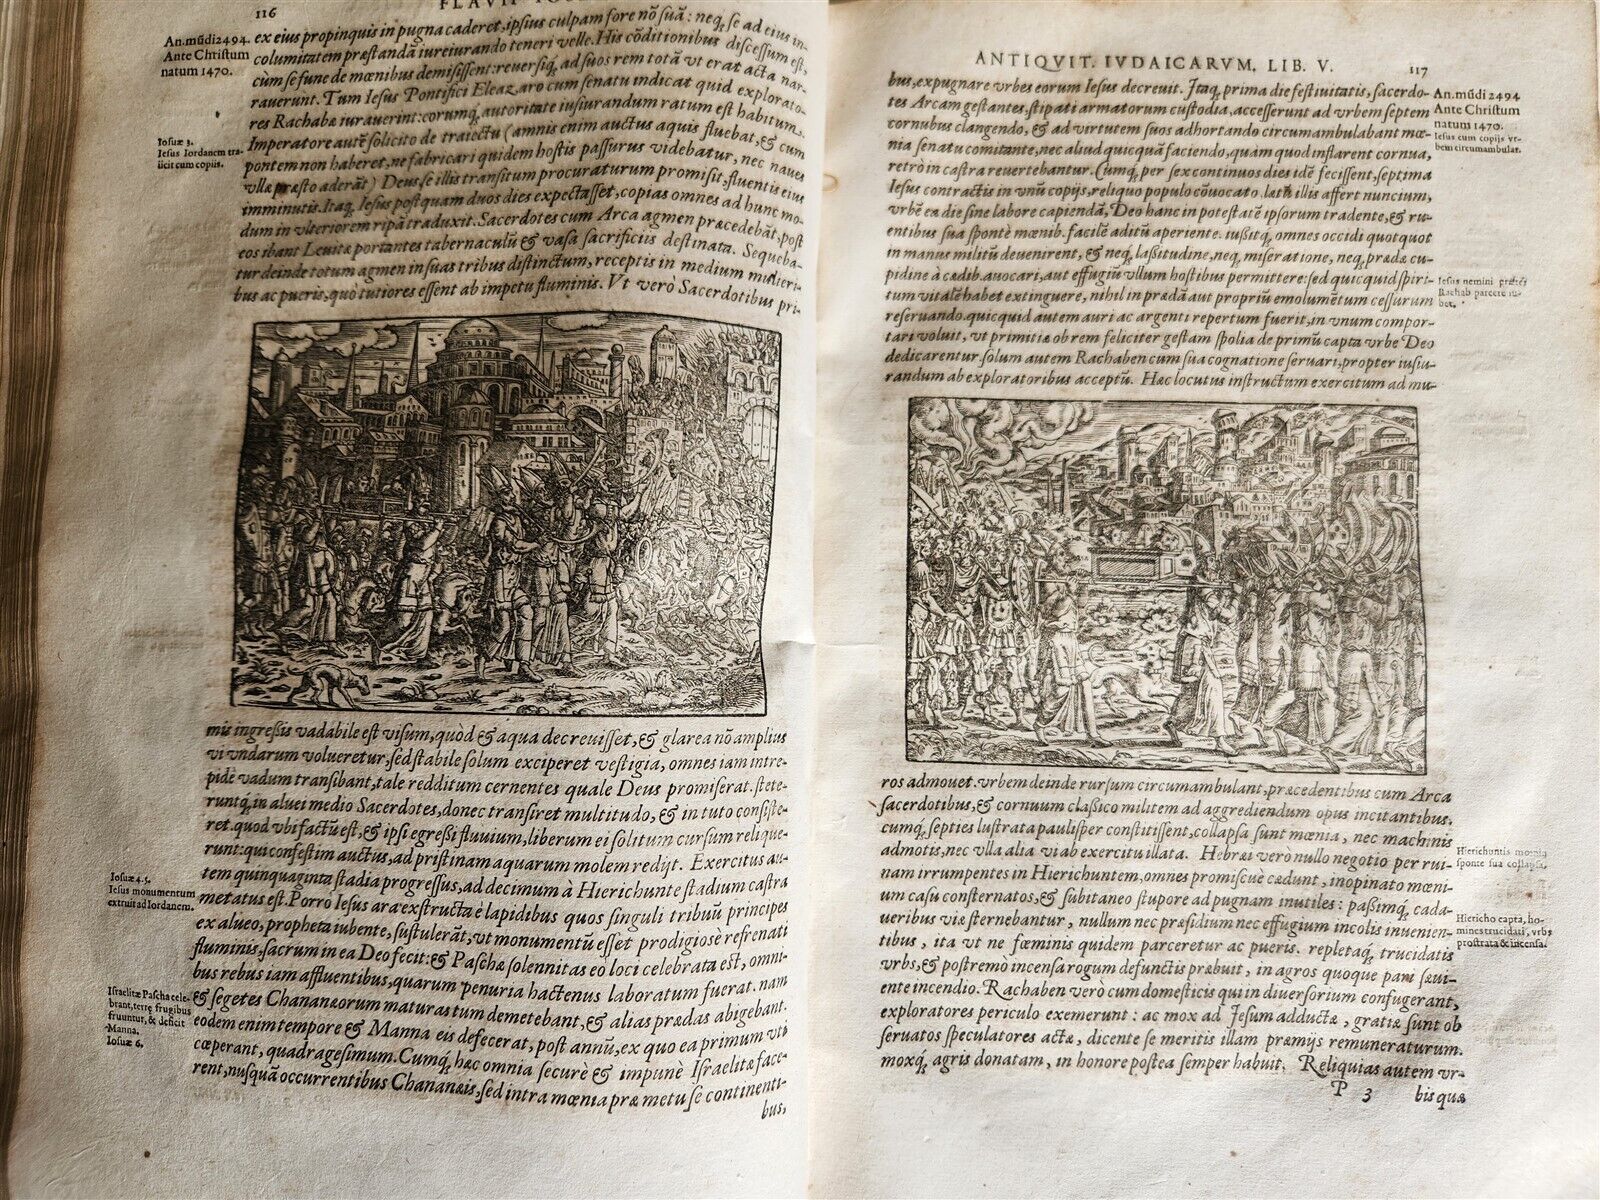 116
FLAVII IOSE
An. mūdi 2494.
Ante Christum
natum 1470.
ex eius propinquis in pugna caderet, ipsius culpam fore nō suā: neq; se ad eius in-
columitatem præstandā iureiurando teneri velle. His cōditionibus discessum est,
cùm se fune de mœnibus demisissent: reuersiq; ad suos rem totā vt erat acta nar-
rauerunt. Tum Iesus Pontifici Eleazaro cum senatu indicat quid explorato-
res Rachabæ iurauerint: eorumq; autoritate iusiurandum ratum est habitum.
Iosuæ 3.
Iesus Iordanem tra-
iicit cum copiis.
Imperatore autē solicito de traiectu (amnis enim auctus aquis fluebat, & cùm
pontem non haberet, ne fabricari quidem hostis passurus videbatur, nec naues
vllæ præsto aderāt) Deus se illis transitum procuraturum promisit, fluentis eius
imminutis. Itaq; Iesus postquam duos dies expectasset, copias omnes ad hunc mo-
dum in vlteriorem ripā traduxit. Sacerdotes cum Arca agmen præcedebāt, post
eos ibant Leuitæ portantes tabernaculū & vasa sacrificiis destinata. Sequeba-
tur deinde totum agmen in suas tribus distinctum, receptis in medium mulieri-
bus ac pueris, quò tutiores essent ab impetu fluminis. Vt verò Sacerdotibus pri-
mis ingressis vadabile est visum, quòd & aqua decreuisset, & glarea nō amplius
vi vndarum volueretur, sed stabile solum exciperet vestigia, omnes iam intre-
pidè vadum transibant, tale redditum cernentes quale Deus promiserat. stete-
runtq; in aluei medio Sacerdotes, donec transiret multitudo, & in tuto consiste-
ret. quod vbi factū est, & ipsi egressi fluuium, liberum ei solitum cursum relique-
runt: qui confestim auctus, ad pristinam aquarum molem redijt. Exercitus au-
Iosuæ 4.5.
Iesus monumentum
extruit ad Iordanem.
tem quinquaginta stadia progressus, ad decimum à Hierichunte stadium castra
metatus est. Porrò Iesus ara exstructa è lapidibus quos singuli tribuū principes
ex alueo, propheta iubente, sustulerāt, vt monumentū esset prodigiosè refrenati
fluminis, sacrum in ea Deo fecit: & Paschæ solennitas eo loci celebrata est, omni-
bus rebus iam affluentibus, quarum penuria hactenus laboratum fuerat. nam
Israelitæ Pascha cele-
brant, terræ frugibus
fruuntur, & deficit
Manna.
Iosuæ 6.
& segetes Chananæorum maturas tum demetebant, & alias prædas abigebant.
eodem enim tempore & Manna eis defecerat, post annū, ex quo ea primum vti
cœperant, quadragesimum. Cumq; hæc omnia securè & impunè Israelitæ face-
rent, nusquā occurrentibus Chananæis, sed intra mœnia præ metu se continenti-
bus,
ANTIQVIT. IVDAICARVM, LIB. V.
117
bus, expugnare vrbes eorum Iesus decreuit. Itaq; prima die festiuitatis, sacerdo-
tes Arcam gestantes, stipati armatorum custodia, accesserunt ad vrbem septem
cornubus clangendo, & ad virtutem suos adhortando circumambulabant mœ-
nia senatu comitante, nec aliud quicquā faciendo, quàm quod inflarent cornua,
retrò in castra reuertebantur. Cumq; per sex continuos dies idē fecissent, septima
An. mūdi 2494
Ante Christum
natum 1470.
Iesus cum copijs vr-
bem circumambulat.
Iesus contractis in vnū copijs, reliquo populo cōuocato. læta illis affert nuncium,
vrbē ea die sine labore capiendā, Deo hanc in potestatē ipsorum tradente, & ru-
entibus sua spontè mœnib. facilē aditū aperiente. iußitq; omnes occidi quotquot
in manus militū deuenirent, & neq; laßitudine, neq; miseratione, neq; prædæ cu-
pidine à cædib. auocari, aut effugiū vllum hostibus permittere: sed quicquid spiri-
tum vitalē habet extinguere, nihil in prædā aut propriū emolumētum cessurum
Iesus nemini præter
Rachab parcere iu-
bet.
reseruando. quicquid autem auri ac argenti repertum fuerit, in vnum compor-
tari voluit, vt primitiæ ob rem feliciter gestam spolia de primū capta vrbe Deo
dedicarentur. solum autem Rachaben cum sua cognatione seruari, propter iusiu-
randum ab exploratoribus acceptū. Hæc locutus instructum exercitum ad mu-
ros admouet. vrbem deinde rursum circumambulant, præcedentibus cum Arca
sacerdotibus, & cornuum claßico militem ad aggrediendum opus incitantibus.
cumq; septies lustrata paulisper constitissent, collapsa sunt mœnia, nec machinis
admotis, nec vlla alia vi ab exercitu illata. Hebræi verò nullo negotio per rui-
Hierichuntis mœnia
sponte sua collapsa.
nam irrumpentes in Hierichuntem, omnes promiscuè cædunt, inopinato mœni-
um casu consternatos, & subitaneo stupore ad pugnam inutiles: paßimq; cada-
ueribus viæ sternebantur, nullum nec præsidium nec effugium incolis inuenien-
tibus, ita vt ne fœminis quidem parceretur ac pueris. repletaq; trucidatis
Hiericho capta, ho-
mines trucidati, vrbs
prostrata & incensa.
vrbs, & postremò incensa rogum defunctis præbuit, in agros quoque pari sæui-
ente incendio. Rachaben verò cum domesticis qui in diuersorium confugerant,
exploratores periculo exemerunt: ac mox ad Jesum adductæ, gratiæ sunt ob
seruatos speculatores actæ, dicente se meritis illam præmijs remuneraturum.
moxq; agris donatam, in honore postea semper habuit. Reliquias autem vr-
P 3
bis quæ